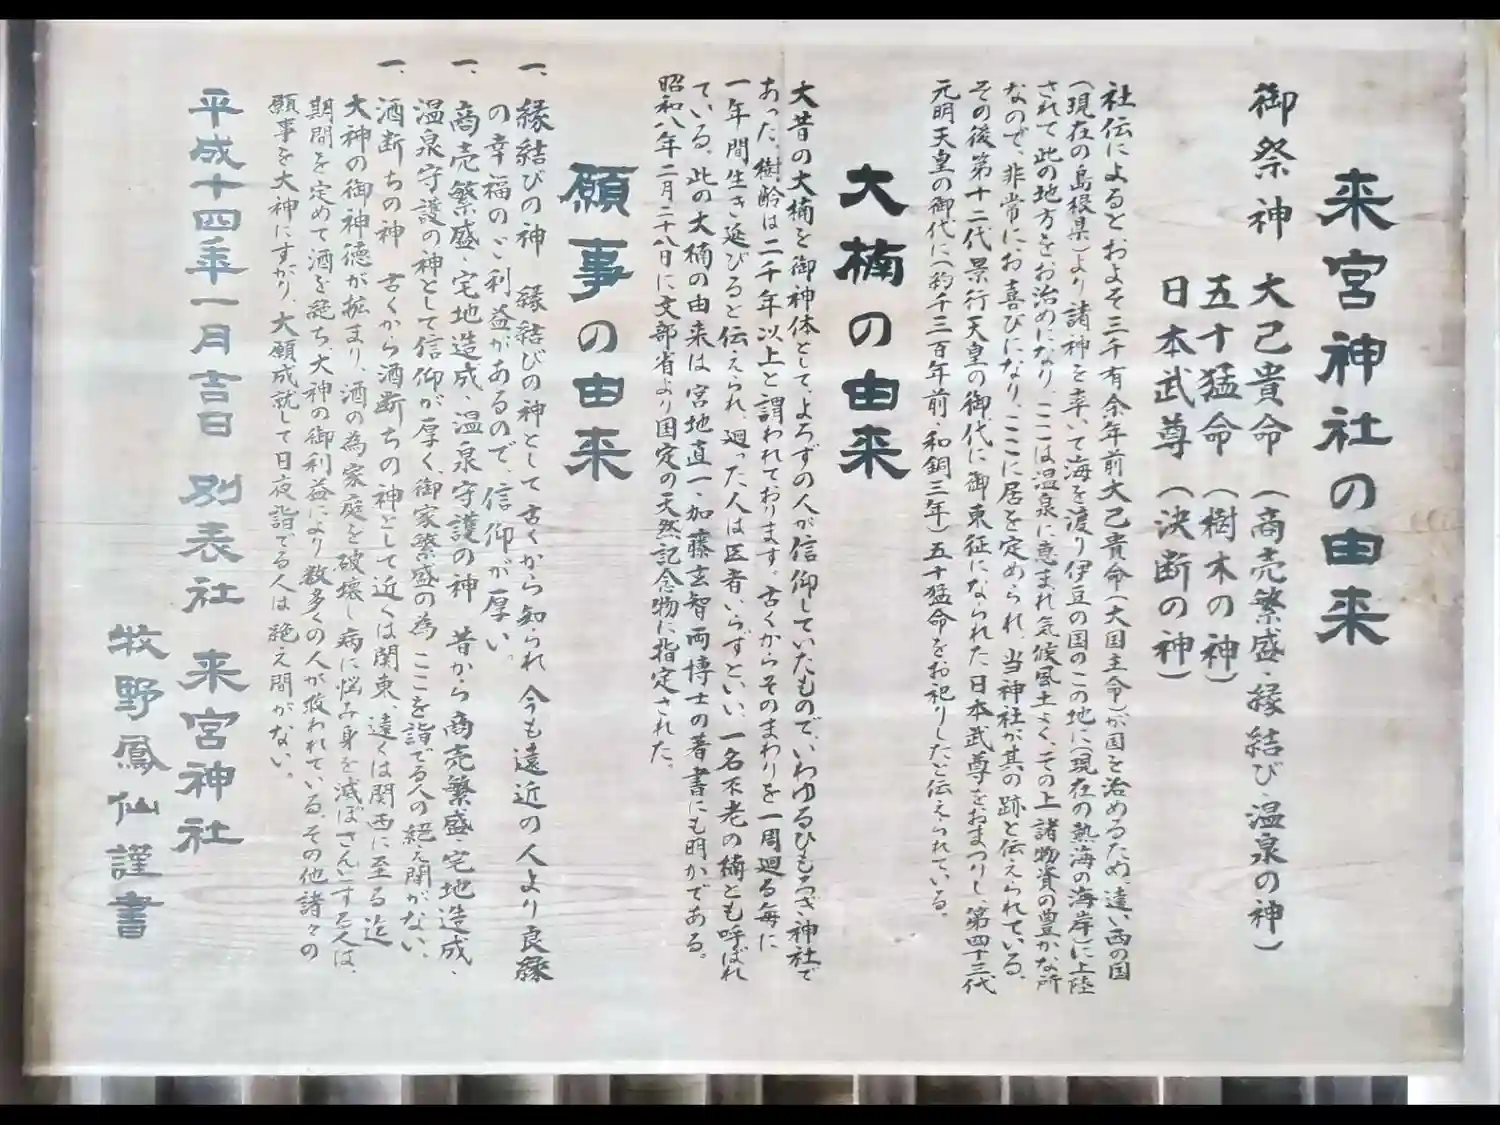 来宮神社の由来
御祭神 大己貴命(商売繁盛・縁結び・温泉の神)
五十猛命(樹木の神)
日本武尊(決断の神)
社伝によるとおよそ三千有余年前大己貴命(大国主命)が国を治めるため、遠い西の国
(現在の島根県)より諸神を率いて海を渡り伊豆の国のこの地に(現在の熱海の海岸)に上陸
されて此の地方をお治めになり、ここは温泉に恵まれ気候風土よく、その上諸物資の豊かな所
なので、非常にお喜びになり、ここに居を定められ、当神社が其の跡と伝えられている。
その後第十二代景行天皇の御代に御東征になられた日本武尊をおまつりし、第四十三代
元明天皇の御代に(約千三百年前・和銅三年)五十猛命をお祀りしたと伝えられている。
大楠の由来
大昔の大楠を御神体として、よろずの人が信仰していたもので、いわゆるひもろぎ神社で
あった。樹齢は二千年以上と謂われております。古くからそのまわりを一周廻る毎に
一年間生き延びると伝えられ、廻った人は医者いらずといい、一名不老の楠とも呼ばれ
ている。此の大楠の由来は宮地直一・加藤玄智両博士の著書にも明かである。
昭和八年二月二十八日に文部省より国定の天然記念物に指定された。
願事の由来
一、縁結びの神 縁結びの神として古くから知られ 今も遠近の人より良縁
の幸福のご利益があるので、信仰が厚い。
一、商売繁盛・宅地造成・温泉守護の神 昔から商売繁盛・宅地造成・
温泉守護の神として信仰が厚く、御家繁盛の為 ここを詣でる人の絶え間がない、
一、酒断ちの神 古くから酒断ちの神として近くは関東、遠くは関西に至る迄
大神の御神徳が拡まり、酒の為家庭を破壊し病に悩み身を滅ぼさんとする人は、
期間を定めて酒を絶ち大神の御利益により数多くの人が救われている。その他諸々の
願事を大神にすがり、大願成就して日夜詣でる人は絶え間がない。
平成十四年一月吉日 別表社 来宮神社
牧野鳳仙謹書